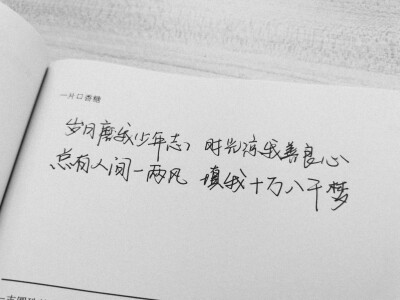 一片口香糖
岁月磨我少年志，时光凉我善良心
总有人间一两风 填我十万八千梦